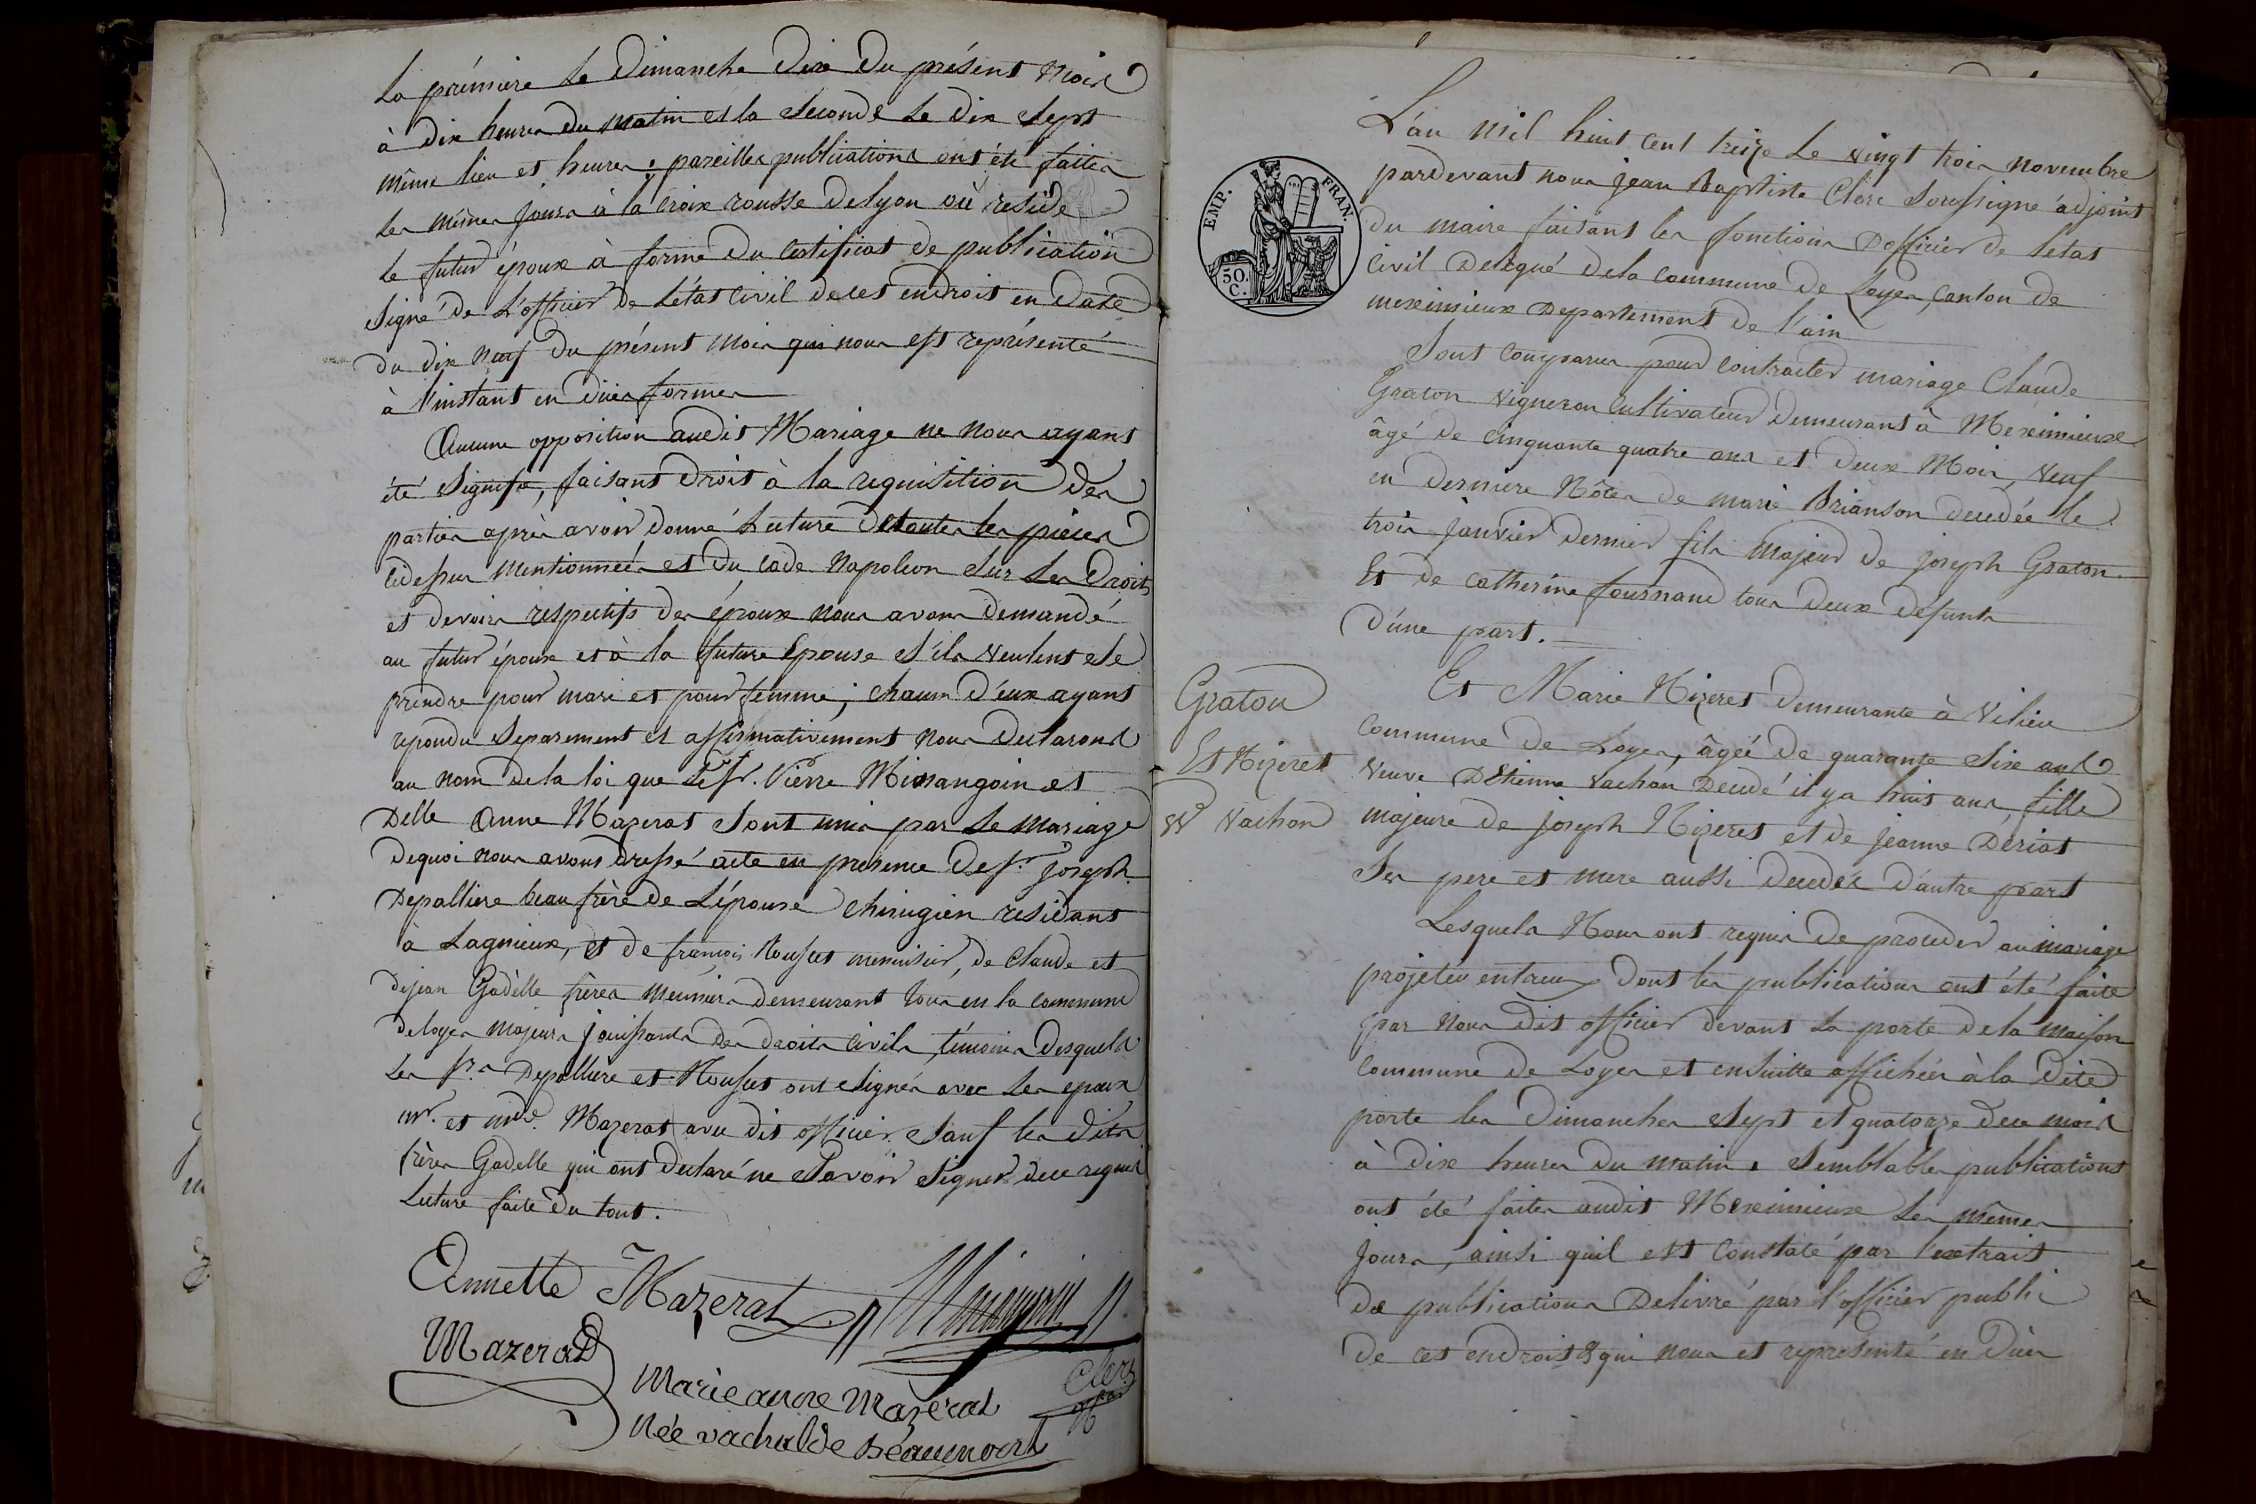 La prémiere le Dimanche Dix Du présent Mois
à dix heures du matin et la seconde le dix sept
même lieu et heures, pareilles publications ont été faites
les mêmes jours à la croix rousse de lyon où reside
le futur époux à forme du certificat de publication
signé de L'officier de L'état civil de cet endroit en date
du dix neuf du présent mois qui nous est représenté
à l'instant en dues formes
Aucune opposition audit Mariage ne nous ayant
été signifié, faisant droit à la requisition des
parties après avoir donné Lecture de toutes les pièces
cidessus mentionnées et du code Napoleon sur les Droits
et devoirs respectifs des époux nous avons demandé
au futur époux et à la future Epouse s'ils veulent se
prendre pour mari et pour femme; chacun d'eux ayant
repondu separement et affirmativement nous declarons
au nom de la loi que Le Sr. Pierre Minangoin et
Delle Anne Mazerat sont unis par le mariage
dequoi nous avons dressé acte en présence de Sr. joseph
Depalliere beau frère de L'épouse chirugien residant
à Lagnieux, et de francois Rousset menuisier, de Claude et
de jean Gadelle frères meuniers demeurant tous en la commune
de loyes majeurs jouissants des droits civils, témoins desquels
les Srs Depalliere et Rousset ont signés avec les epoux
mr. et mde. Mazerat avec dit officier. Sauf les dits
frères Gadelle qui ont declaré ne savoir signer de ce requis
Lecture faite du tout.
Annette Mazerat Minangoin
Mazerat
Marie anne Mazerat
née vachal de Beaumont
Clerc
EMP. FRAN.
50. C.
L'an mil huit cent treize le vingt trois novembre
pardevant nous jean Baptiste Clerc soussigné adjoint
du maire faisant les fonctions D'officier de l'etat
civil Delegué de la commune de Loyes, canton de
meximieux Departement de l'ain
Sont comparus pour contracter mariage Claude
Graton vigneron cultivateur demeurant à Meximieux
âgé de cinquante quatre ans et deux Mois, veuf
en derniere Nôces de marie Brianson decedée le
trois janvier dernier fils majeur de joseph Graton
Et de catherine fournand tous deux défunts
D'une part.
Graton
Et Nizeret
Ve Vachon
Et Marie Nizeret demeurante à Vilieu
commune de Loyes, âgée de quarante six ans
veuve D'Etienne Vachon Decedé il y a huit ans, fille
majeure de joseph Nizeret et de jeanne Deriat
ses pere et mere aussi decedés d'autre part
Lesquels Nous ont requis de proceder au mariage
projetté entreux dont les publications ont été faite
par nous dit officier devant la porte de la maison
commune de Loyes et ensuitte affichées à la dite
porte les Dimanches sept et quatorze de ce mois
à dix heures du matin. Semblables publications
ont été faites audit Meximieux les mêmes
jours, ainsi quil est constaté par l'extrait
de publications Delivré par l'officier publi
de cet endroit & qui nous est representé en dues